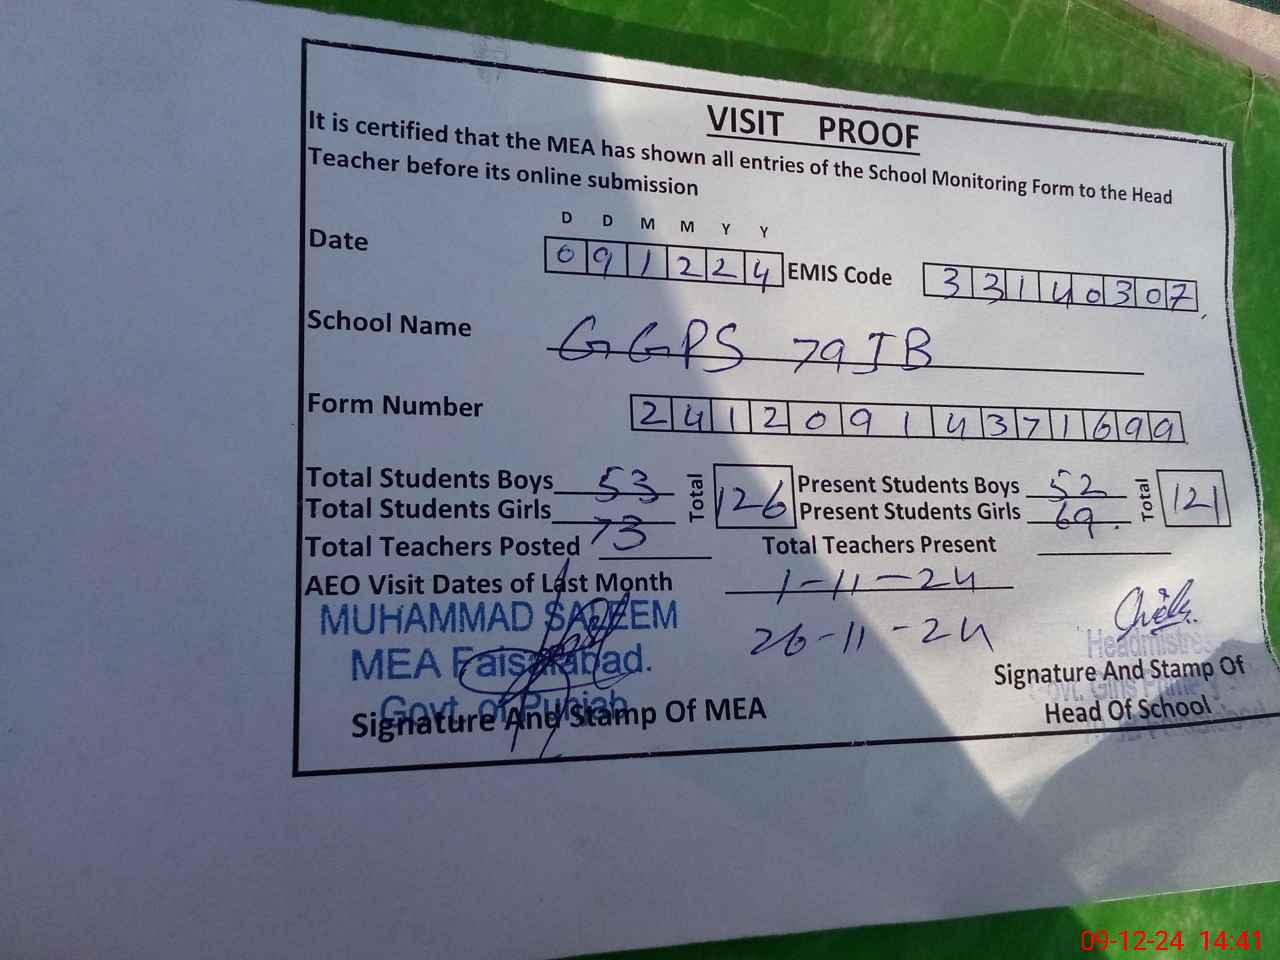 VISIT PROOF
It is certified that the MEA has shown all entries of the School Monitoring Form to the Head
Teacher before its online submission
D D M M Y Y
Date 091224 EMIS Code 33140307
School Name GGPS 79 JB
Form Number 24120914371699
Total Students Boys 53 Total 126 Present Students Boys 52 Total 121
Total Students Girls 73 Present Students Girls 69
Total Teachers Posted Total Teachers Present
AEO Visit Dates of Last Month 1-11-24
26-11-24
MUHAMMAD SALEEM
MEA Faisalabad.
Govt. of Punjab
Signature And Stamp Of MEA
Headmistress
Signature And Stamp Of
Govt. Girls
Head Of School
09-12-24 14:41